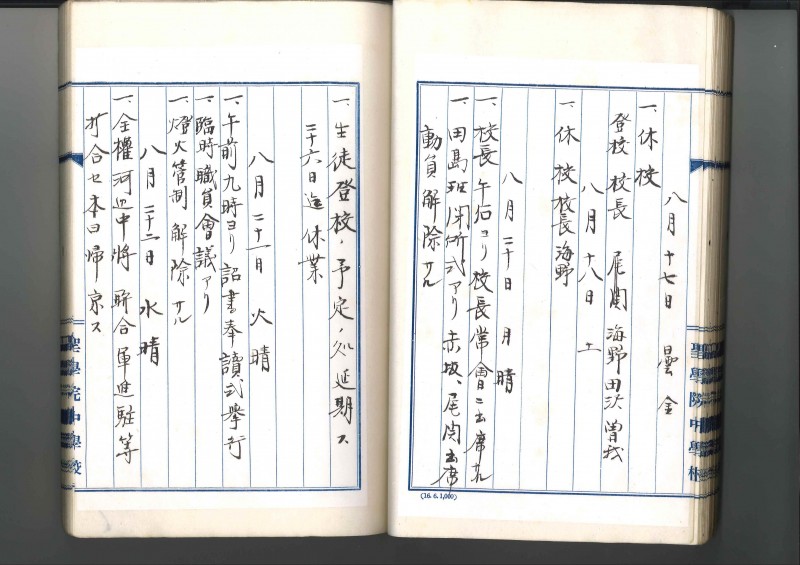 八月十七日 曇 金
一、休校
登校 校長 尾関 海野 田沢 曽我
八月十八日 土
一、休校 校長 海野
八月二十日 月 晴
一、校長 午后ヨリ 校長常會ニ出席
一、田島班閉所式アリ 赤坂、尾関出席
動員解除サル
(16. 6. 1,000)
一、生徒登校ノ予定ノ処延期ス
二十六日迄休業
八月二十一日 火 晴
一、午前九時ヨリ詔書奉讀式擧行
一、臨時職員會議アリ
一、燈火管制解除サル
八月二十二日 水 晴
一、全權河辺中將 聯合軍進駐等
打合セ本日帰京ス
聖學院中學校